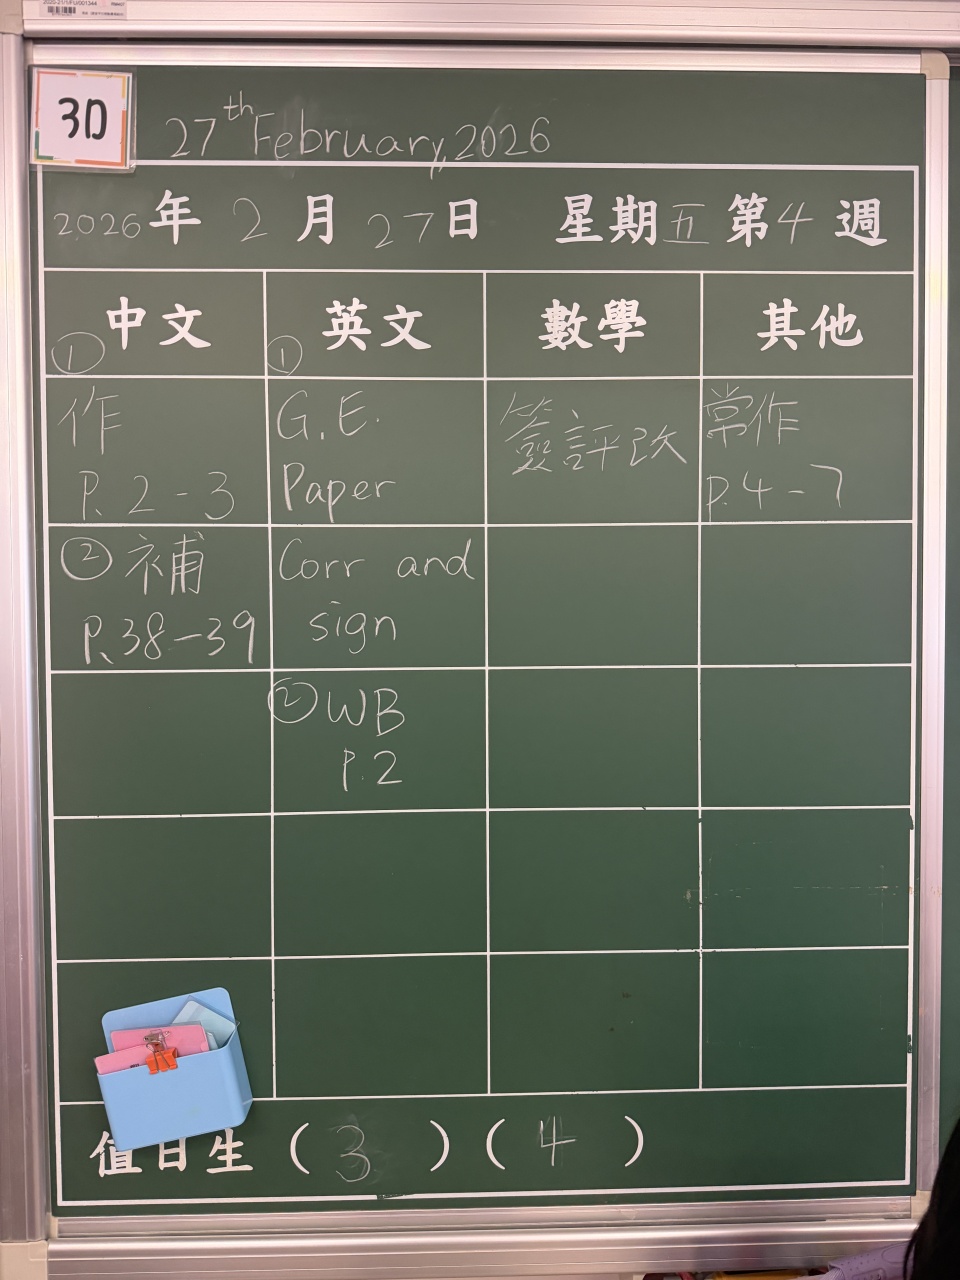 2020-21/1/FU/001344
3D
27th February, 2026
2026年2月27日 星期五 第4週
中文 英文 數學 其他
① 作
P.2-3
② 補
P.38-39
① G.E.
Paper
Corr and
sign
② WB
P.2
簽評改
常作
P.4-7
值日生 (3) (4)